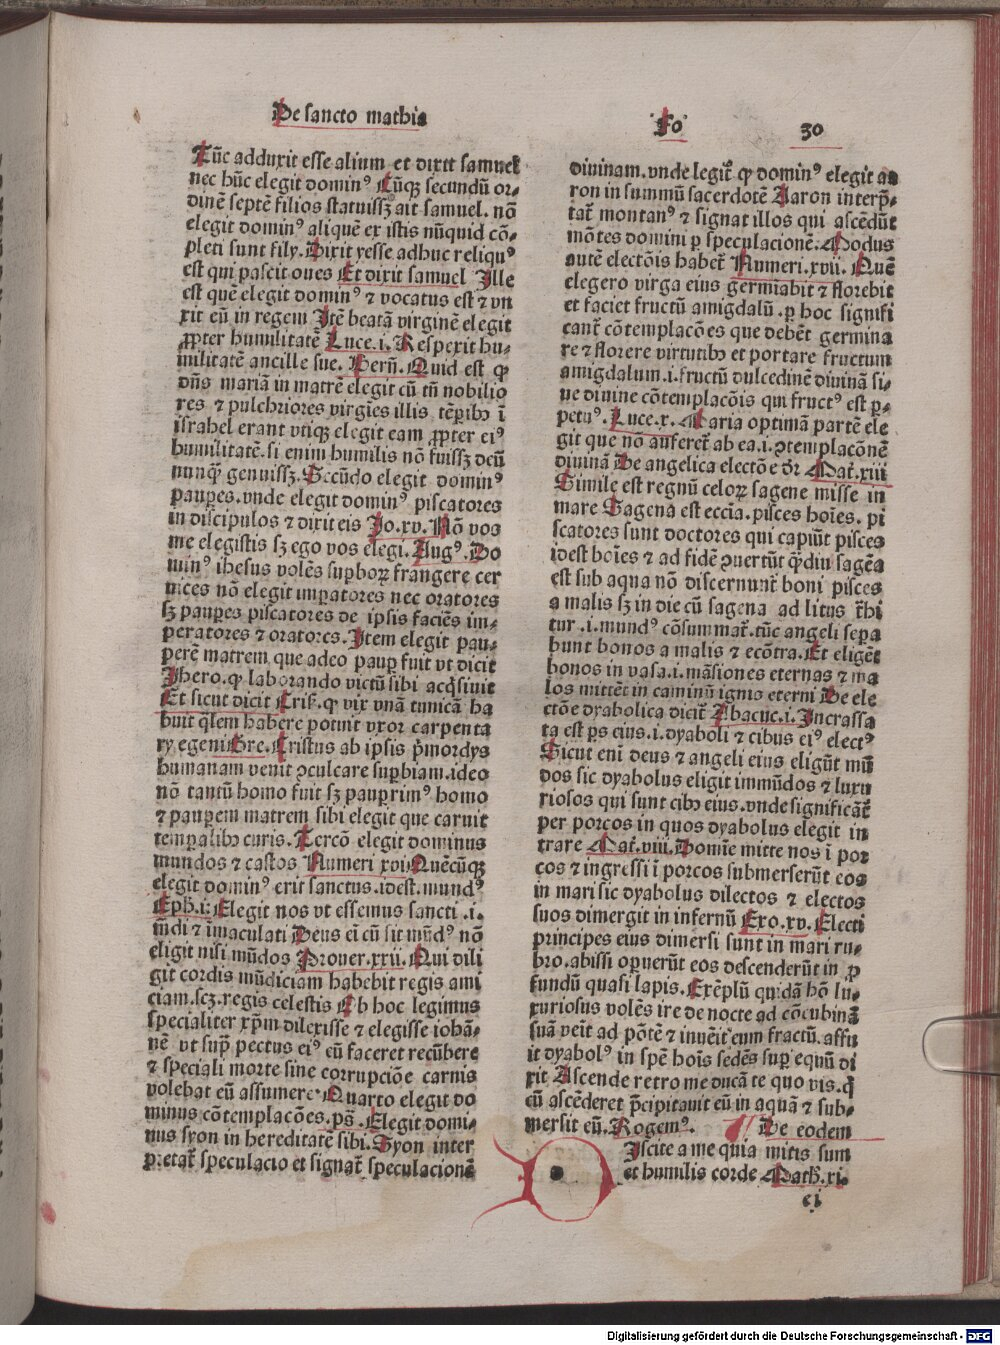 De sancto mathia
Fo 30
Tūc adduxit esse alium et dixit samuel
nec hūc elegit domin⁹ Cūqꝫ secundū or-
dinē septē filios statuissꝫ ait samuel. nō
elegit domin⁹ aliquē ex istis nūquid cō-
pleti sunt fily. Dixit yesse adhuc reliqu⁹
est qui pascit oues Et dixit samuel Ille
est quē elegit domin⁹ ⁊ vocatus est ⁊ vn
xit eū in regem Itē beatā virginē elegit
ꝓpter humilitatē Luce.i. Respexit hu-
militatē ancille sue. Berñ. Quid est ꝙ
dn̄s mariā in matrē elegit cū tn̄ nobilio
res ⁊ pulchriores virgies illis tēꝑibꝰ ī
israhel erant vtiqꝫ elegit eam ꝓpter ei⁹
humilitatē. si enim humilis nō fuissꝫ deū
nunꝙ̄ genuissꝫ. Secūdo elegit domin⁹
pauꝑes. vnde elegit domin⁹ piscatores
in discipulos ⁊ dixit eis Jo.xv. Nō vos
me elegistis sꝫ ego vos elegi. Aug⁹. Do
min⁹ ihesus volēs suꝑboꝝ frangere cer
uices nō elegit imꝑatores nec oratores
sꝫ pauꝑes piscatores de ipsis faciēs im-
peratores ⁊ oratores. Item elegit pau-
perē matrem que adeo pauꝑ fuit vt dicit
Jhero. ꝙ laborando victū sibi acq̄siuit
Et sicut dicit Crisꝭ. ꝙ vix vnā tunicā ha
buit q̄lem habere potuit vxor carpenta
ry egeni Gre. Cristus ab ipsis p̄mordys
humanam venit ꝯculcare suꝑbiam. ideo
nō tantū homo fuit sꝫ pauꝑrim⁹ homo
⁊ pauꝑem matrem sibi elegit que caruit
temꝑalibꝰ curis. Tercō elegit dominus
mundos ⁊ castos Numeri xvi Quēcūqꝫ
elegit domin⁹ erit sanctus. idest. mund⁹
Eph.i: Elegit nos vt essemus sancti .i.
mūdi ⁊ īmaculati Deus ei cū sit mūd⁹ nō
eligit nisi mūdos Prouer.xxii. Qui dili
git cordis mūdiciam habebit regis ami
ciam. scꝫ. regis celestis Ob hoc legimus
specialiter xp̄m dilexisse ⁊ elegisse iohā-
nē vt supꝰ pectus ei⁹ eū faceret recūbere
⁊ speciali morte sine corrupciōe carnis
volebat eū assumere. Quarto elegit do
minus cōtemplacōes. ps̄. Elegit domi-
nus syon in hereditatē sibi. Syon inter
p̱etat̄ speculacio et signat̄ speculacionē
diuinam. vnde legit̄ ꝙ domin⁹ elegit aa
ron in summū sacerdotē Aaron interp̄-
tat̄ montan⁹ ⁊ signat illos qui ascēdūt
mōtes domini ꝑ speculacionē. Modus
autē electōis habet̄ Numeri.xvii. Quē
elegero virga eius germīabit ⁊ florebit
et faciet fructū amigdalū .ꝑ hoc signifi
cant̄ cōtemplacōes que debēt germina
re ⁊ florere virtutibꝰ et portare fructum
amigdalum .i. fructū dulcedinē diuinā si-
ue diuine cōtemplacōis qui fruct⁹ est ꝑ-
petu⁹. Luce.x. Maria optimā partē ele
git que nō auferet̄ ab ea .i. ꝯtemplacōnē
diuinā De angelica electōe dr̄ Mat̄.xiii
Simile est regnū celoꝝ sagene misse in
mare Sagena est eccia. pisces hoīes. pi
scatores sunt doctores qui capiūt pisces
idest hoīes ⁊ ad fidē ꝯuertūt q̄diu sagēa
est sub aqua nō discernunt̄ boni pisces
a malis sꝫ in die cū sagena ad litus t̄hi
tur .i. mund⁹ cōsummat̄. tūc angeli sepa
bunt bonos a malis ⁊ ecōtra. Et eligēt
bonos in vasa .i. māsiones eternas ⁊ ma
los mittēt in caminū ignis eterni De ele
ctōe dyabolica dicit̄ Abacuc.i. Incrassa
ta est ꝑs eius .i. dyaboli ⁊ cibus ei⁹ elect⁹
Sicut eni deus ⁊ angeli eius eligūt mū
dos sic dyabolus eligit immūdos ⁊ luxu
riosos qui sunt cibꝰ eius. vnde significāt̄
per porcos in quos dyabolus elegit in
trare Mat̄.viii. Domīe mitte nos ī por
cos ⁊ ingressi ī porcos submerserūt eos
in mari sic dyabolus dilectos ⁊ electos
suos dimergit in infernū Exo.xv. Electi
principes eius dimersi sunt in mari ru-
bro. abissi operuerūt eos descenderūt in ꝓ
fundū quasi lapis. Exēplū quidā hō lu-
xuriosus volēs ire de nocte ad cōcubinā
suā veīt ad pōtē ⁊ inuēit eum fractū. affu
it dyabol⁹ in spē hoīs sedēs suꝑ equū di
xit Ascende retro me ducā te quo vis. q̄
cū ascēderet p̄cipitauit eū in aquā ⁊ sub-
mersit eū. Rogem⁹. De eodem
Iscite a me quia mitis sum
et humilis corde Math̄.xi.
ei
Digitalisierung gefördert durch die Deutsche Forschungsgemeinschaft - DFG